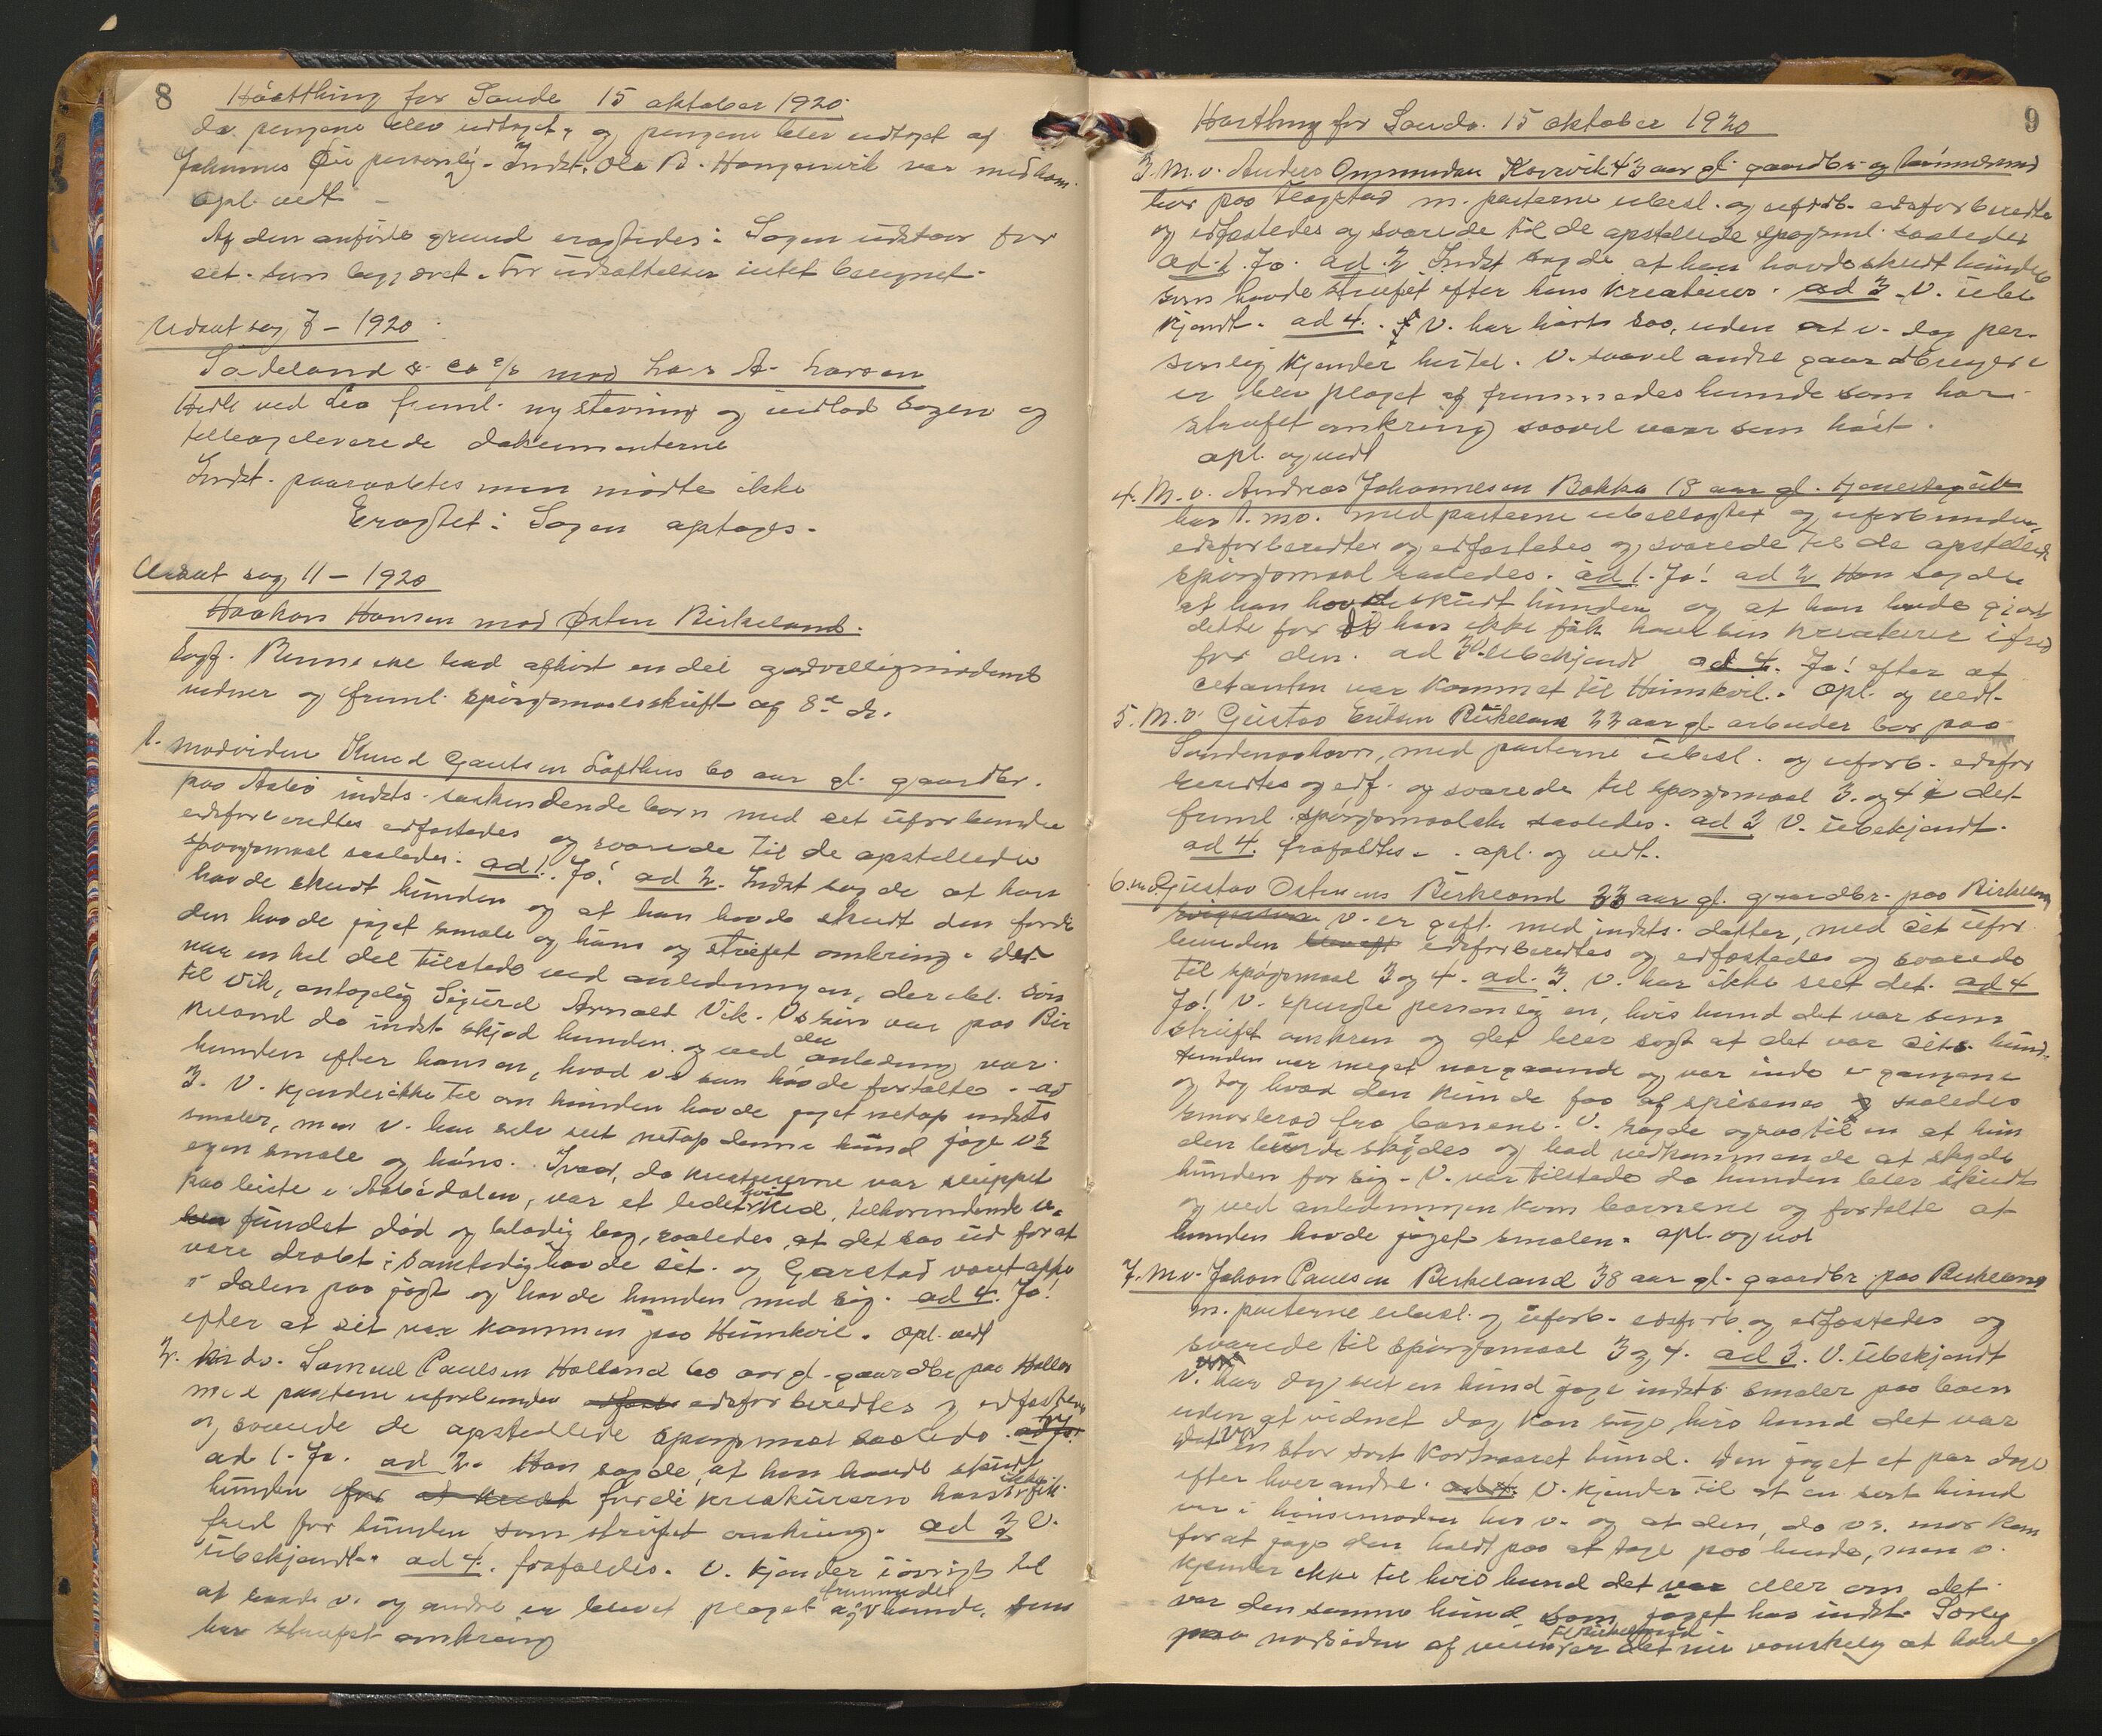 8
Hóstthing for Sande 15 oktober 1920.
da pengene blev udtaget, og pengene blev udtaget af
Johannes Øie personlig. Indst. Ole B. Honganvik var med ham.
opl. vedt -
Af den anførte grund eragtedes: Sagen udstaar for
cit. som begjæret. For udsættelsen intet beregnet.
Udsat sag 7 - 1920.
Sædeland & Co a/s mod Lars A. Larsen
Hedle ved Leo freml. ny stevning og indlod sagen og
tilbageleverede dokumenterne
Indst. paaraabtes men mødte ikke
Eragtet: Sagen optages.
Udsat sag 11 - 1920
Haakon Hansen mod Østen Birkeland.
Sagf. Renne bad afhørt en del godvilligmødende
vidner og freml. spørgsmaalsskrift af 8de ds.
1. modvidne Knud Gautsen Lofthus 60 aar gl. gaardbr.
paa Asbø indsts. søskendende barn med cit uforbunden
edsforberedtes edfæstedes og svarede til de opstillede
spørgsmaal saaledes: ad 1. Ja! ad 2. Indst sagde at han
havde skudt hunden og at han havde skudt den fordi
den havde jaget smale og høns og streifet omkring. Der
var en hel del tilstede ved anledningen, der ibl. søn
til Vik, antagelig Sigurd Arnold Vik. Vs søn var paa Bir
keland da indst. skjød hunden og ved den anledning var
hunden efter hansen, hvad vs søn havde fortalte - ad
3. V. kjender ikke til om hunden havde jaget netop indsts
smaler, men v. har selv seet netop denne hund jage vs
egen smale og høns. Ivaar, da kreaturerne var sluppet
paa beite i Asbødalen, var et lidet hvit kid, tilhørende v.
fundet død og blodig bag, saaledes, at det saa ud for at
være dræbt; samtidig havde cit. og Garstad været oppe
i dalen paa jagt og havde hunden med sig. ad 4. Ja!
efter at cit var kommen paa Humkvil. Opl. vedt
2. m do. Samuel Paulsen Holland 60 aar gl. gaardbr paa Hollan
med parterne uforbunden edsforberedtes og edfæstedes
og svarede de opstillede spørgsmaal saaledes.
ad 1. Ja. ad 2. Han sagde, at han havde skudt
hunden for at fordi kreaturern hans ikke fik
fred for hunden som streifet omkring. ad 3 V.
ubekjendt. ad 4. frafaldes. V. kjender iøvrigt til
at baade v. og andre er blevet plaget af fremmede hunde, som
har streifet omkring
9
Hostthing for Sande. 15 oktober 1920
3. M. v. Anders Ommundsen Kaarvik 43 aar gl. gaardbr. og
bor paa Flagstad m. parterne ubesl. og uforb. edsforberedtes
og edfæstedes og svarede til de opstillede spørgsml. saaledes
ad 1. Ja. ad 2 Indst sagde at han havde skudt hunden
som havde streifet efter hans kreaturer. ad 3. V. ube
kjendt. ad 4. V. har hørt saa, uden at v. dog per-
sonlig kjender hertil. V. saavel andre gaardbrugere
er blev plaget af fremmedes hunde som har
streifet omkring saavel vaar som høst.
opl. og vedt
4. M. v. Andreas Johannesen Bakka 18 aar gl. tjenestegut
hos 1. mv. med parterne ubeslægtet og uforbunden,
edsforberedtes og edfæstedes og svarede til de opstillede
spørgsmaal saaledes. ad 1. Ja! ad 2 Han sagde
at han havde skudt hunden og at han havde gjort
dette for di han ikke fik have sin kreaturer ifred
for den. ad 3 V. ubekjendt ad 4. Ja! efter at
citanten var kommet til Humkvil. Opl. og vedt.
5. M. v. Gustav Eriksen Birkeland 23 aar gl. arbeider bor paa
Sandenaahavn, med parterne ubesl. og uforb. edsfor
beredtes og edf. og svarede til spørgsmaal 3. og 4 i det
freml. spørgsmaalsk. saaledes. ad 3 V. ubekjendt.
ad 4. frafaldtes. - opl. og vedt.
6. m v. Gustav Ostensen Birkeland 33 aar gl. gaardbr. paa Birkeland
v. er gift med indsts. datter, med cit ufor
bunden edsforberedtes og edfæstedes og svarede
til spøgsmaal 3 og 4. ad. 3. V. har ikke seet det. ad 4
Ja! V. spurgte personlig en, hvis hund det var som
streifet omkren og det blev sagt at det var cits hund.
Hunden var meget nærgaaende og var inde i gangene
og tog hvad den kunde faa af spisende saaledes
smørbrød fra barnene. V. sagde ogsaa til en at hun
den burde skydes og bad vedkommende at skyde
hunden for sig. V. var tilstede da hunden blev skudt
og ved anledningen kom barnene og fortalte at
hunden havde jaget smalen. opl. og vedt
7. M v. Johan Paulsen Birkeland 38 aar gl. gaardbr paa Birkeland
m. parterne ubesl. og uforb. edsforb. og edfæstedes og
svarede til spørgsmaal 3 og 4. ad 3. V. ubekjendt
V. har dog seet en hund jage indsts smaler paa bøen
uden at vidnet dog kan sige hvis hund det var
det var en stor sort korthaaret hund. Den jaget et par dage
efter hverandre. ad 4. V. kjender til at en sort hund
var i hønsemaden hos v. og at den, da vs. mor kom
for at jage den holdt paa at tage paa hende, men v.
kjender ikke til hvis hund det var eller om det
var den samme hund som jaget hos indst. Særlig
paa nordsiden af veien til Birkeland er det nu vanskelig at holde